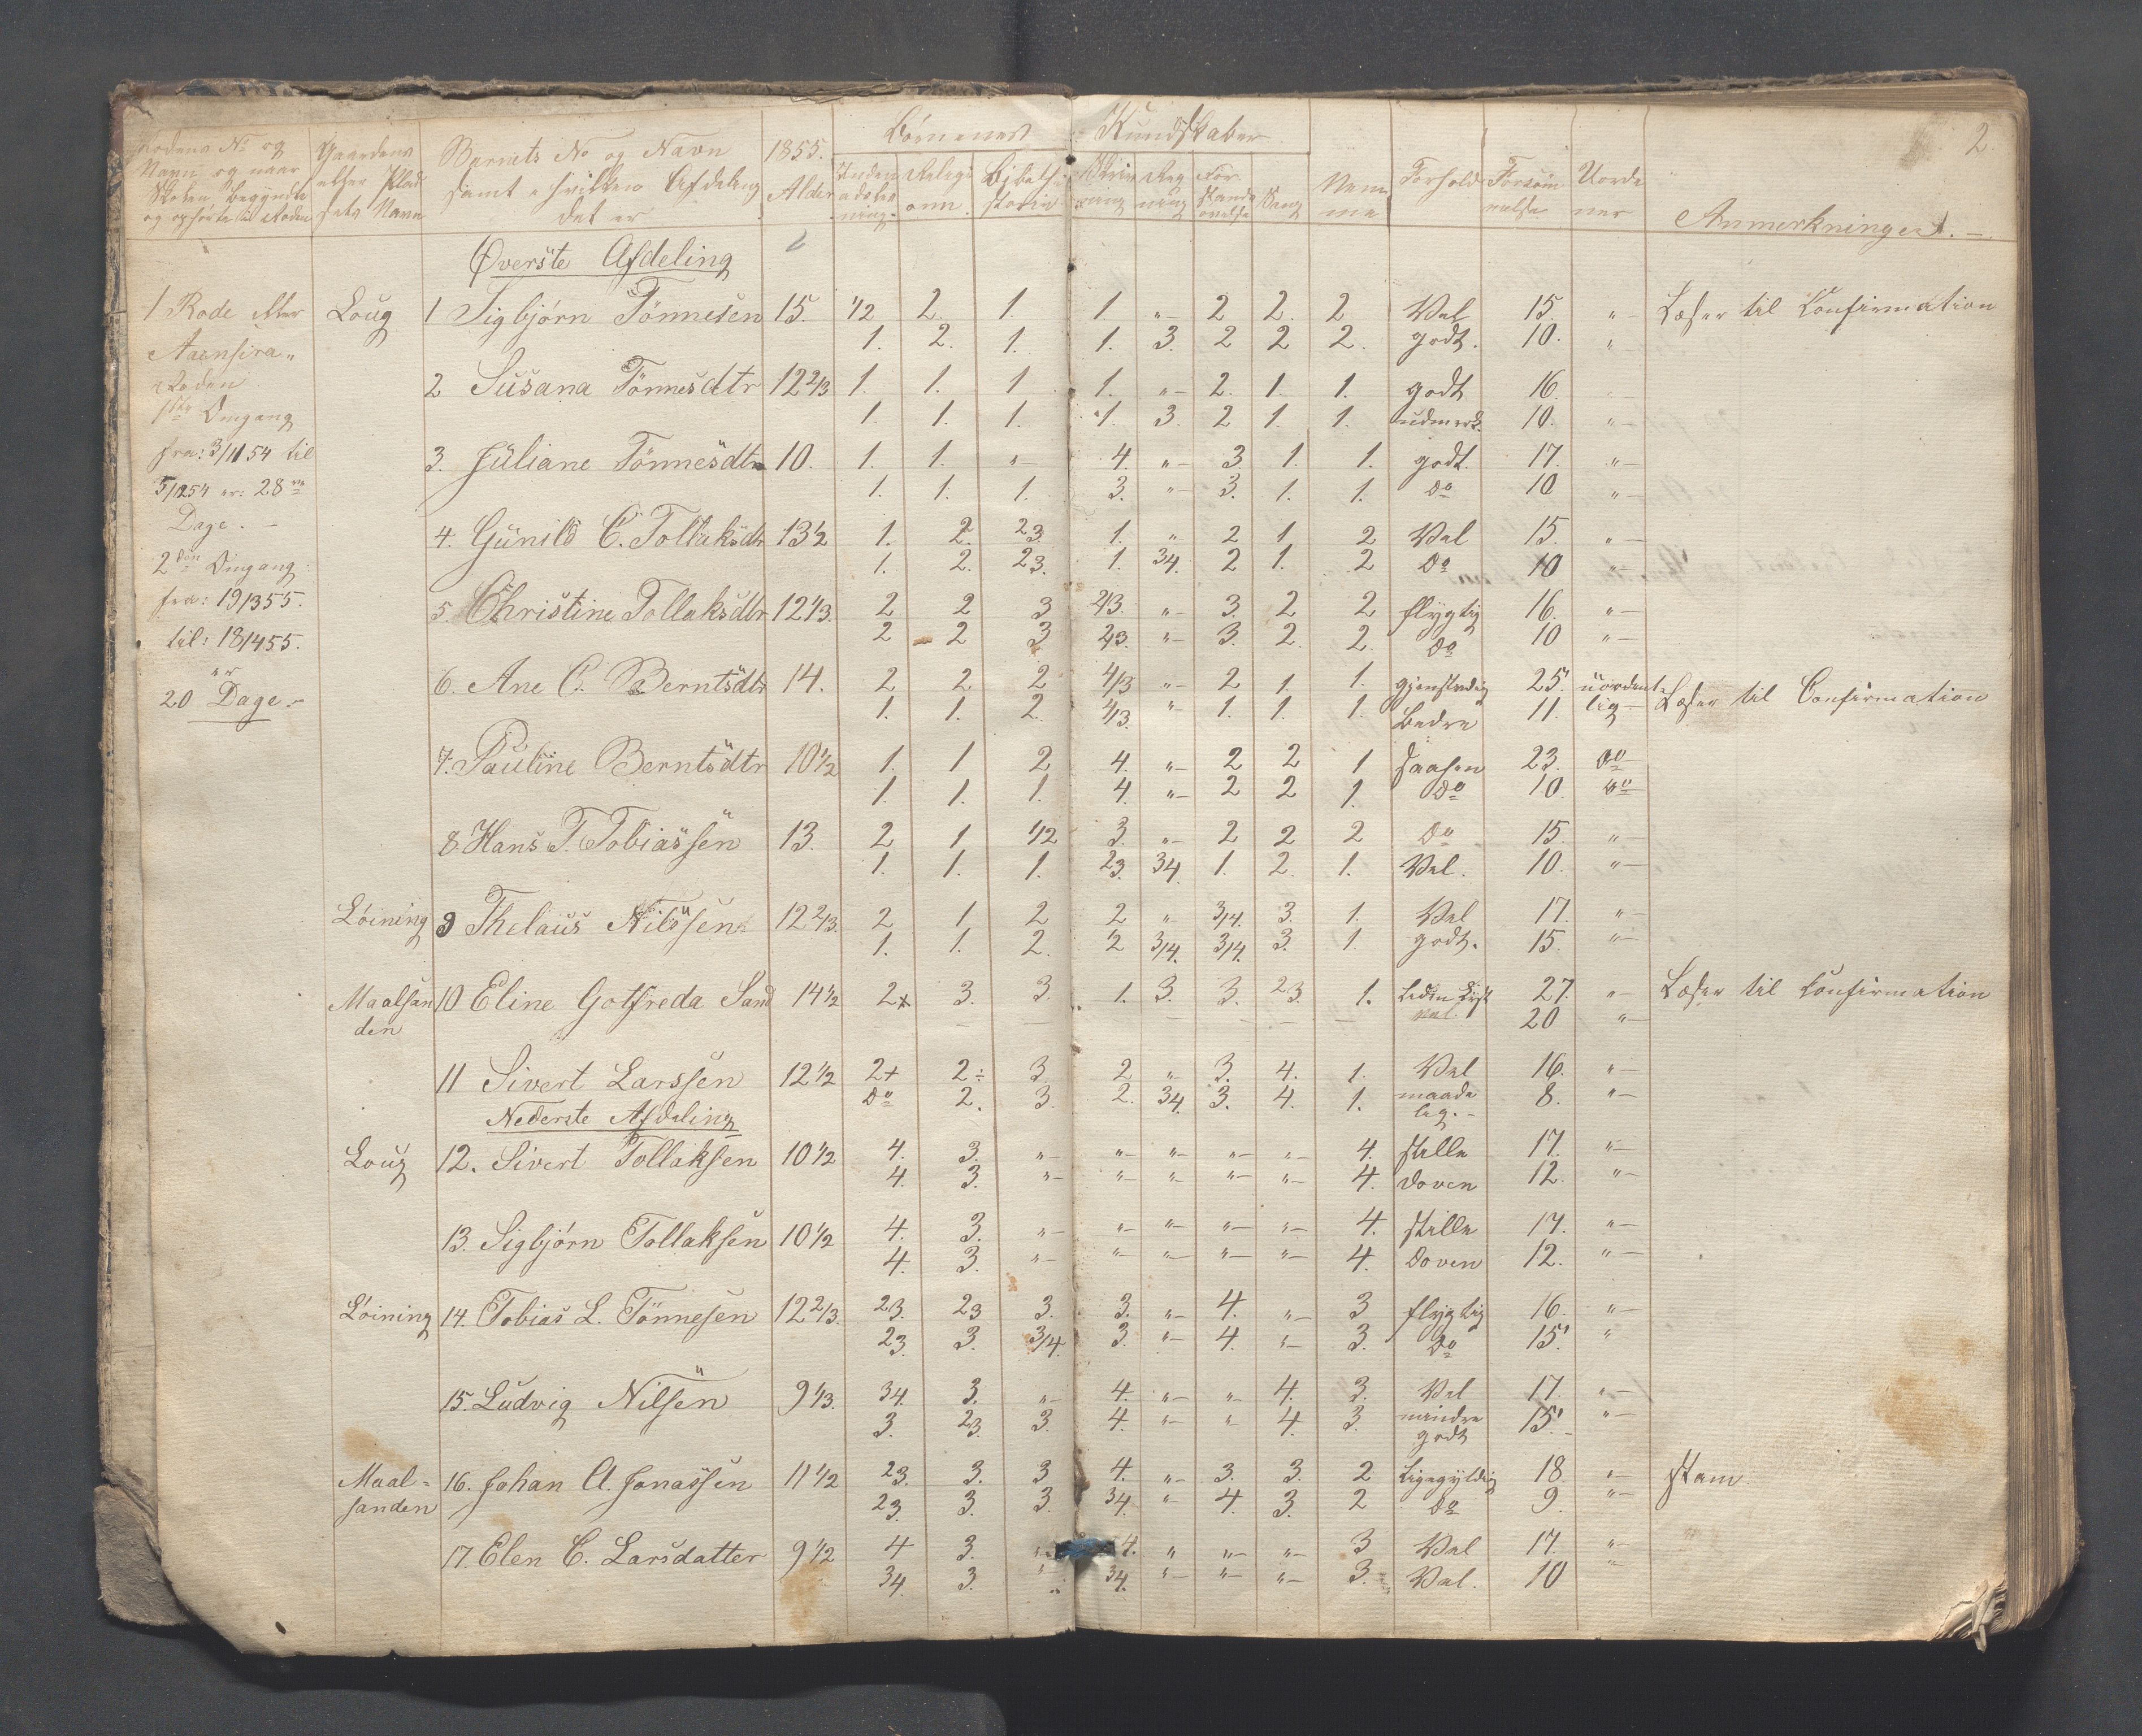 2.
Rodens No og
Navn og naar
Skolen begyndte
og ophørte i Roden
Gaardens
eller Plad
sets Navn
Barnets No og Navn
samt i hvilken Afdeling
det er
1855.
Alder
Børnenes Kundskaber
Inden
adsles
ning.
Religi
onn
Bibelhi
storie
Skriv
ning
Reg
ning
For
stands
øvelse
Sang
Nem
me
Forhold
Forsøm
melse
Uorde
ner
Anmerkninger. —
Øverste Afdeling
1 Rode eller Loug 1 Sigbjørn Tönnesen 15. 1/2 2. 1. 1 "- 2 2. 2 Vel 15. "- Læser til Confirmation
Aaensira- 1. 2. 1. 1. 3. 2 2 2. godt. 10. "-
Roden 2 Susana Tönnesdtr 12 2/3 1. 1. 1. 1. "- 2. 1. 1. godt 16.
1ste Omgang 1. 1. 1. 1. 3. 2 1. 1. udmerk. 10. "-
fra: 3/11 54 til 3. Juliane Tönnesdtr 10. 1. 1. "- 4. "- 3. 1. 1. godt. 17. "-
5/12 54 er: 28 1. 1. 1. 3. "- 3. 1. 1. do 10 "-
Dage. - 4. Gunild C. Tollaksdtr 13 1/2 1. 2. 23. 1. " 2 1. 2 Vel 15. "-
2den Omgang 1. 2. 23. 1. 34. 2 1. 2 do 10 "-
fra: 19/3 55. 5. Christine Tollaksdtr 12 1/3. 2 2 3 2/3. "- 3. 2 2 flygtig 16. "-
til: 18/4 55. 2 2 3 23. "- 3. 2. 2. do 10 "-
er 6. Ane C. Berntsdtr 14. 2 2 2 4/3 "- 2 1. 1. gjenstridig 25. uordent-
20 Dage.- 1. 1. 2. 4/3. "- 1. 1. 1. Bedre 11. lig- Læser til Confirmation
7. Pauline Berntsdtr 10 1/2 1. 1 2 4. "- 2 2 1 saasen 23. do
1. 1. 1. 4. "- 2 2 1. do 10. do
8 Hans T. Tobiassen 13. 2 1 1/2 3. "- 2 2 2 do 15. "-
1. 1. 1. 23. 34. 1. 2. 1. Vel. 10. "-
Löining 9 Thelaus Nilssen 12 2/3. 2 1 2 2 " 3/4. 3. 1. Vel 17. "-
1. 1. 2. 2 3/4. 3/4. 3. 1. godt. 15. "-
Maalsan 10 Eline Gotfreda Sand 14 1/2 2+ 3. 3. 1. 3. 3. 23. 1. 27. "- Læser til Confirmation
den — — — — — — — vel. 20 "-
11 Sivert Larssen 12 1/2 2+ 2÷ 3. 2 "- 3. 4. 1. Vel 16. "-
do 2. 3. 2. 34. 3. 4. 1. maade 8. "-
lig.-
Nederste Afdeling
Loug 12. Sivert Tollaksen 10 1/2 4. 3. "- "- "- "- "- 4. stille 17. "-
4. 3. "- "- "- "- "- 4. doven 12. "-
13. Sigbjörn Tollaksen 10 1/2 4. 3. "- "- "- "- "- 4. stille 17. "-
4. 3. "- "- "- "- "- 4. doven 12. "-
Löining 14. Tobias L. Tönnesen 12 2/3. 23. 23 3. 3. "- 4. "- 3 flygtig 16. "-
23. 3. 3/4. 3. "- 4. "- 3. do 15. "
15. Ludvig Nilsen 9 1/3. 34. 3. "- 4. "- "- 4. 3. Vel 17. "-
3. 23. 3. 4. "- "- 4. 3. mindre 15. "-
godt
Maal- 16. Johan A. Jonassen 11 1/2 23. 3. 3 4. "- 3. 3. 2 Ligegyldig 18. "- stam
sanden 23. 3. 3. 34. "- 4. 3. 2 do 9. "-
17. Elen C. Larsdatter 9 1/2 4 3. "- 4. " "- "- 3 Vel 17. "-
34. 3. " 34. "- "- "- 3. Vel. 10 "